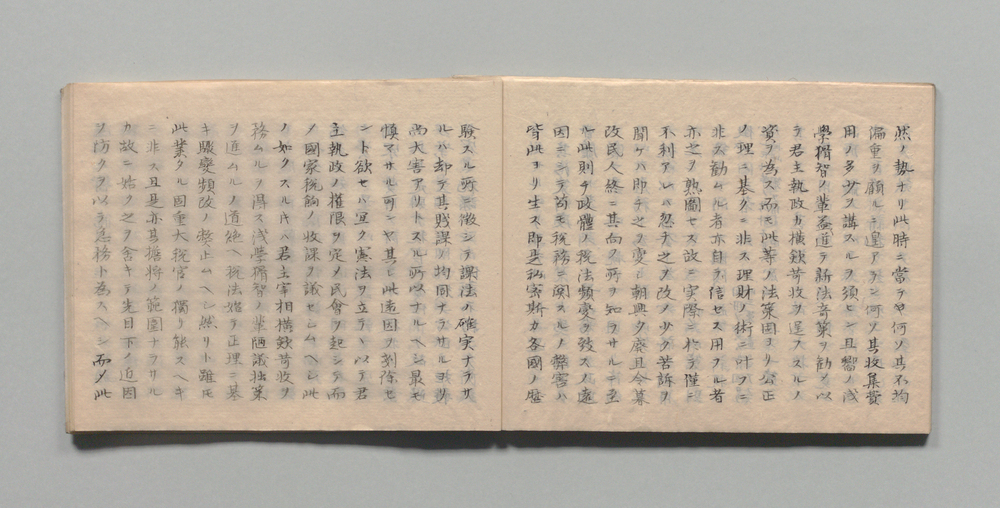 然ノ勢ナリ此時ニ當テヤ何ソ其不均
偏重ヲ顧ルニ遑アラン何ヲ其收集費
用ノ多少ヲ講スルヲ須ヒン且嚮ノ浅
學猾智ノ輩益進テ新法奇策ヲ勧メ以
テ君主執政カ横斂苛收ヲ逞フスルノ
資ヲ為ス而モ此等ノ法策固ヨリ公正
ノ理ニ基クニ非ス理財ノ術ニ叶フニ
非ス勧ムル者亦自ラ信セス用フル者
亦之ヲ熟圖セス故ニ実際ニ於テ僅ニ
不利アレハ忽チ之ヲ改メ少ク苦訴ヲ
聞ケハ即チ之ヲ変シ朝興夕廃且令暮
改民人終ニ其向フ所ヲ知ラサルニ至
ル此則チ政體ノ税法頻変ヲ致スノ遠
因ニシテ苟モ税務ニ関スルノ弊害ハ
皆此ヨリ生ス即是払寄斯カ各國ノ歴
験スル所ニ徴シテ課法ノ確実ナラサ
ルハ却テ其賦課ノ均同ナラサルヨリ
尚大害アリトスル所以ナルヘシ最モ
慎マサル可ンヤ其レ此遠因ヲ剗除セ
ント欲セハ宜ク憲法ヲ立テヽ以テ君
主執政ノ権限ヲ定メ民會ヲ起シテ而
メ國家税餉ノ收課ヲ議セシムヘシ此
ノ如クスル片ハ君主宰相横斂苛收ヲ
務ムルヲ得ス浅學猾智ノ輩陋議拙策
ヲ進ムルノ道絶ヘ税法始テ正理ニ基
キ驟変頻改ノ弊止ムヘシ然リト雖氏
此業タル固重大税官ノ獨リ能スヘキ
ニ非ス且是亦其擔将ノ範圍ナラサル
カ故ニ姑ク之ヲ舍キテ先目下ノ近因
ヲ防クヲ以テ急務ト為スヘシ而メ此